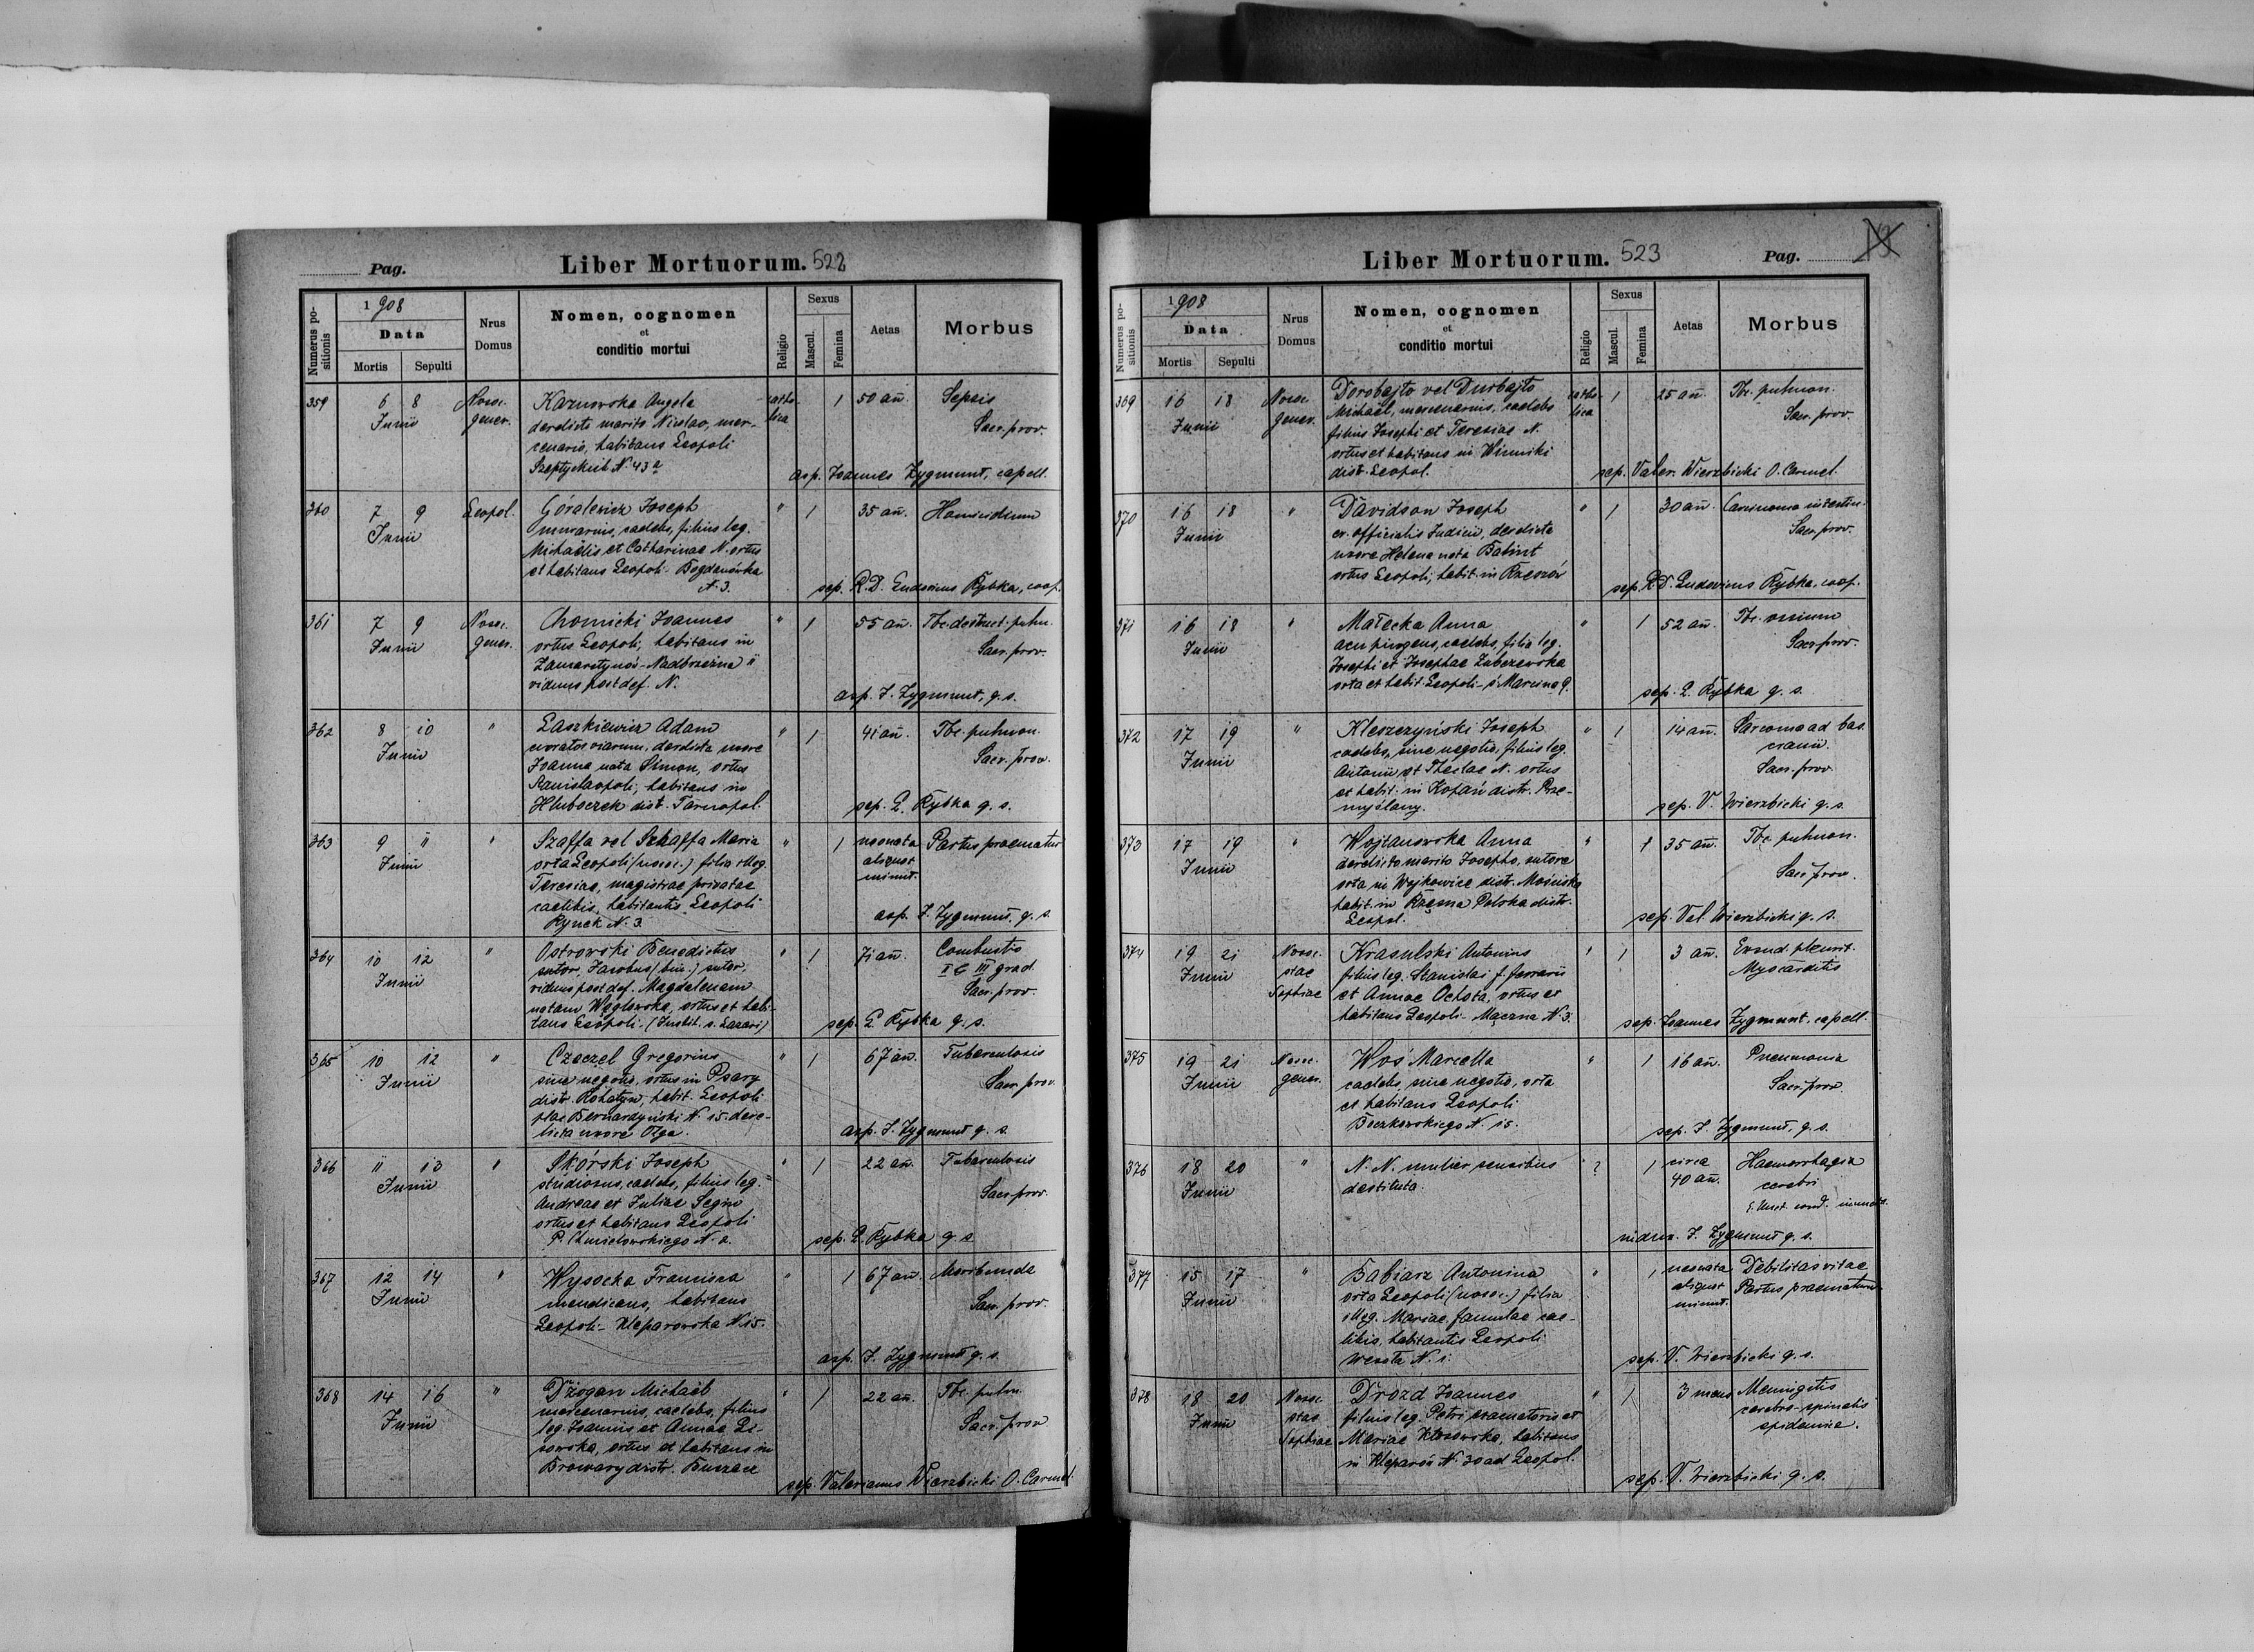 Pag.
Liber Mortuorum. 522
Numerus positionis
1908
Data
Mortis
Sepulti
Nrus Domus
Nomen, cognomen
et
conditio mortui
Religio
Sexus
Mascul.
Femina
Aetas
Morbus
359 6 8 Nosoc. Karnowska Angela catho- 1 50 añ. Sepsis
Junii gener. derelicta marito Nicolao, mer- lica Sacr. prov.
cenario, habitans Leopoli
Szeptyckich N. 43 a asp. Joannes Zygmunt, capell.
360 7 9 Leopol. Góralewicz Joseph " 1 35 añ. Homicidium
Junii murarius, caelebs, filius leg.
Michaëlis et Catharinae N. ortus
et habitans Leopoli - Bogdanówka
N. 3. sep. R. D. Ludovicus Rybka, coop.
361 7 9 Nosoc. Chomicki Joannes " 1 55 añ. Tbc. destruct. pulm.
Junii gener. ortus Leopoli, habitans in Sacr. prov.
Zamarstynów - Nadbrzeżna 11
viduus post def. N. asp. J. Zygmunt, q. s.
362 8 10 " Laszkiewicz Adam " 1 41 añ. Tbc. pulmon.
Junii curator viarum, derelicta uxore Sacr. prov.
Joanna nata Simon, ortus
Stanislaopoli, habitans in
Hluboczek distr. Tarnopol. sep. L. Rybka q. s.
363 9 11 " Szaffa vel Schaffa Maria " 1 neonata Partus praematur
Junii orta Leopoli (nosoc.) filia illeg. aliquot
Teresiae, magistrae privatae minut.
caelibis, habitantis Leopoli
Rynek N. 3. asp. J. Zygmunt, q. s.
364 10 12 " Ostrowski Benedictus " 1 71 añ. Combustio
Junii sutor, Jacobus (bin.) sutor, I & III grad.
viduus post def. Magdalenam Sacr. prov.
natam Węglowska, ortus et habi-
tans Leopoli. (Instit. s. Lazari) sep. L. Rybka q. s.
365 10 12 " Czaczel Gregorius " 1 67 añ. Tuberculosis
Junii sine negotio, ortus in Psary Sacr. prov.
distr. Rohatyn, habit. Leopoli
plac Bernardyński N. 15. dere-
licta uxore Olga. asp. J. Zygmunt q. s.
366 11 13 " Skórski Joseph " 1 22 añ. Tuberculosis
Junii studiosus, caelebs, filius leg. Sacr. prov.
Andreae et Juliae Segin
ortus et habitans Leopoli
P. Chmielowskiego N. 2. sep. L. Rybka q. s.
367 12 14 " Wysocka Francisca " 1 67 añ. Moribunda
Junii mendicans, habitans Sacr. prov.
Leopoli - Kleparowska N. 15.
asp. J. Zygmunt q. s.
368 14 16 " Dżogan Michaël " 1 22 añ. Tbc. pulm.
Junii mercenarius, caelebs, filius Sacr. prov
leg. Joannis et Annae Li-
sowska, ortus et habitans in
Browary distr. Buczacz sep. Valerianus Wierzbicki O. Carmel.
Liber Mortuorum. 523
Pag.
Numerus positionis
1908
Data
Mortis
Sepulti
Nrus Domus
Nomen, cognomen
et
conditio mortui
Religio
Sexus
Mascul.
Femina
Aetas
Morbus
369 16 18 Nosoc. Dorobajto vel Durbajto catho- 1 25 añ. Tbc. pulmon.
Junii gener. Michaël, mercenarius, caelebs lica Sacr. prov.
filius Josephi et Teresiae N.
ortus et habitans in Winniki
distr. Leopol. sep. Valer. Wierzbicki O. Carmel.
370 16 18 " Davidson Joseph " 1 30 añ. Carcinoma intestin.
Junii er. officialis Judicii, derelicta Sacr. prov.
uxore Helena nata
ortus Leopoli, habit. in Rzeszów sep. R. D. Ludovicus Rybka, coop.
371 16 18 " Małecka Anna " 1 52 añ. Tbc. ossium
Junii acu pingens, caelebs, filia leg. Sacr. prov.
Josephi et Josephae Zubczewska
orta et habit. Leopoli - ś. Marcina 9. sep. L. Rybka q. s.
372 17 19 " Kleszczyński Joseph " 1 14 añ. Sarcoma ad bas.
Junii caelebs, sine negotio, filius leg. cranii.
Antonii et Theclae N. ortus Sacr. prov.
et habit. in Kopań distr. Prze-
myślany. sep. V. Wierzbicki q. s.
373 17 19 " Wojtanowska Anna " 1 35 añ. Tbc. pulmon.
Junii derelicto marito Josepho, sutore Sacr. prov.
orta in Wojkowice distr. Mościska
habit. in Rzęsna Polska distr.
Leopol. sep. Val. Wierzbicki q. s.
374 19 21 Nosoc. Krasulski Antonius " 1 3 añ. Exsud. pleurit.
Junii stae filius leg. Stanislai f. ferrarii Myocarditis
Sophiae et Annae Ochota, ortus et
habitans Leopoli - Mączna N. 3. sep. Joannes Zygmunt, capell.
375 19 21 Nosoc. Woś Marcella " 1 16 añ. Pneumonia
Junii gener. caelebs, sine negotio, orta Sacr. prov
et habitans Leopoli
Boczkowskiego N. 15. sep. J. Zygmunt, q. s.
376 18 20 " N. N. mulier sensibus ? 1 circa Haemorrhagia
Junii destituta. 40 añ. cerebri
E. Unct. cond.
J. Zygmunt q. s.
377 15 17 " Babiarz Antonina " 1 neonata Debilitas vitae
Junii orta Leopoli (nosoc.) filia aliquot Partus praematurus
illeg. Mariae, famulae cae- minut.
libis, habitantis Leopoli
Wesoła N. 1. sep. V. Wierzbicki q. s.
378 18 20 Nosoc. Drozd Joannes " 1 3 mens Meningitis
Junii stae filius leg. Petri et cerebro-spinalis
Sophiae Mariae Kłosowska, habitans epidemica.
in Kleparów N. 30 ad Leopol.
sep. V. Wierzbicki q. s.